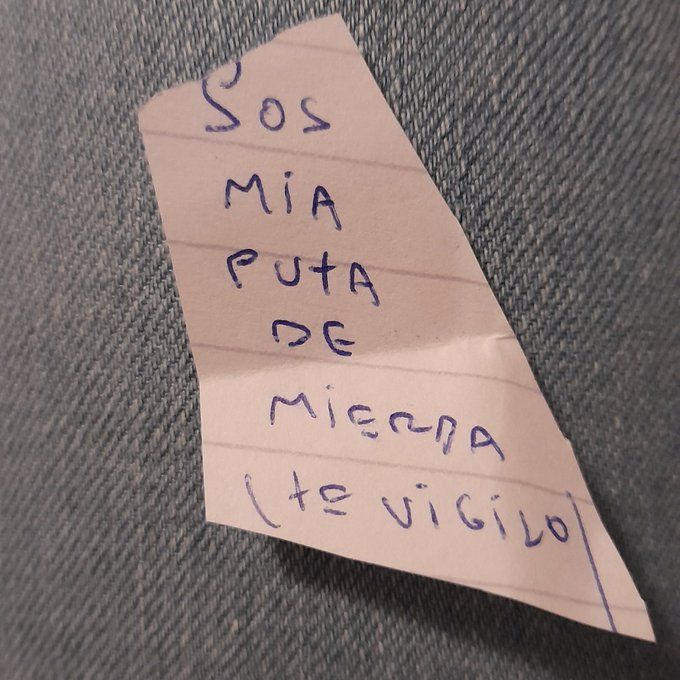 SOS
MiA
PUtA
DE
MiERDA
(tE ViGiLO)